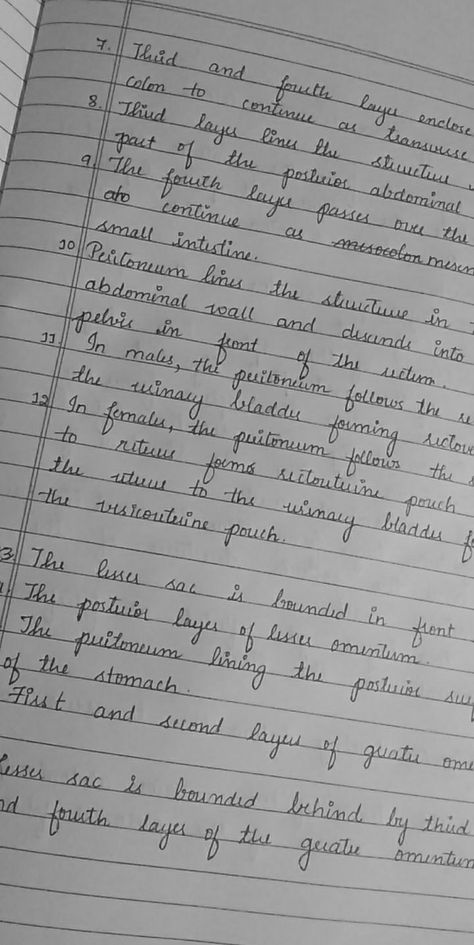 7. Third and fourth layer enclose
colon to continue as transverse
8. Third layer lines the structure
part of the posterior abdominal
9. The fourth layer passes over the
also continue as mesocolon
small intestine.
10 Peritoneum lines the structure in
abdominal wall and disends into
pelvis in front of the rectum.
11. In males, the peritoneum follows the
the urinary bladder forming
12 In females, the peritoneum follows the
to uterus forms rectouterine pouch
the uterus to the urinary bladder
the vesicouterine pouch.
3. The lesser sac is bounded in front
The posterior layer of lesser omentum.
The peritoneum lining the posterior
of the stomach.
First and second layer of greater
lesser sac is bounded behind by third
fourth layer of the greater omentum